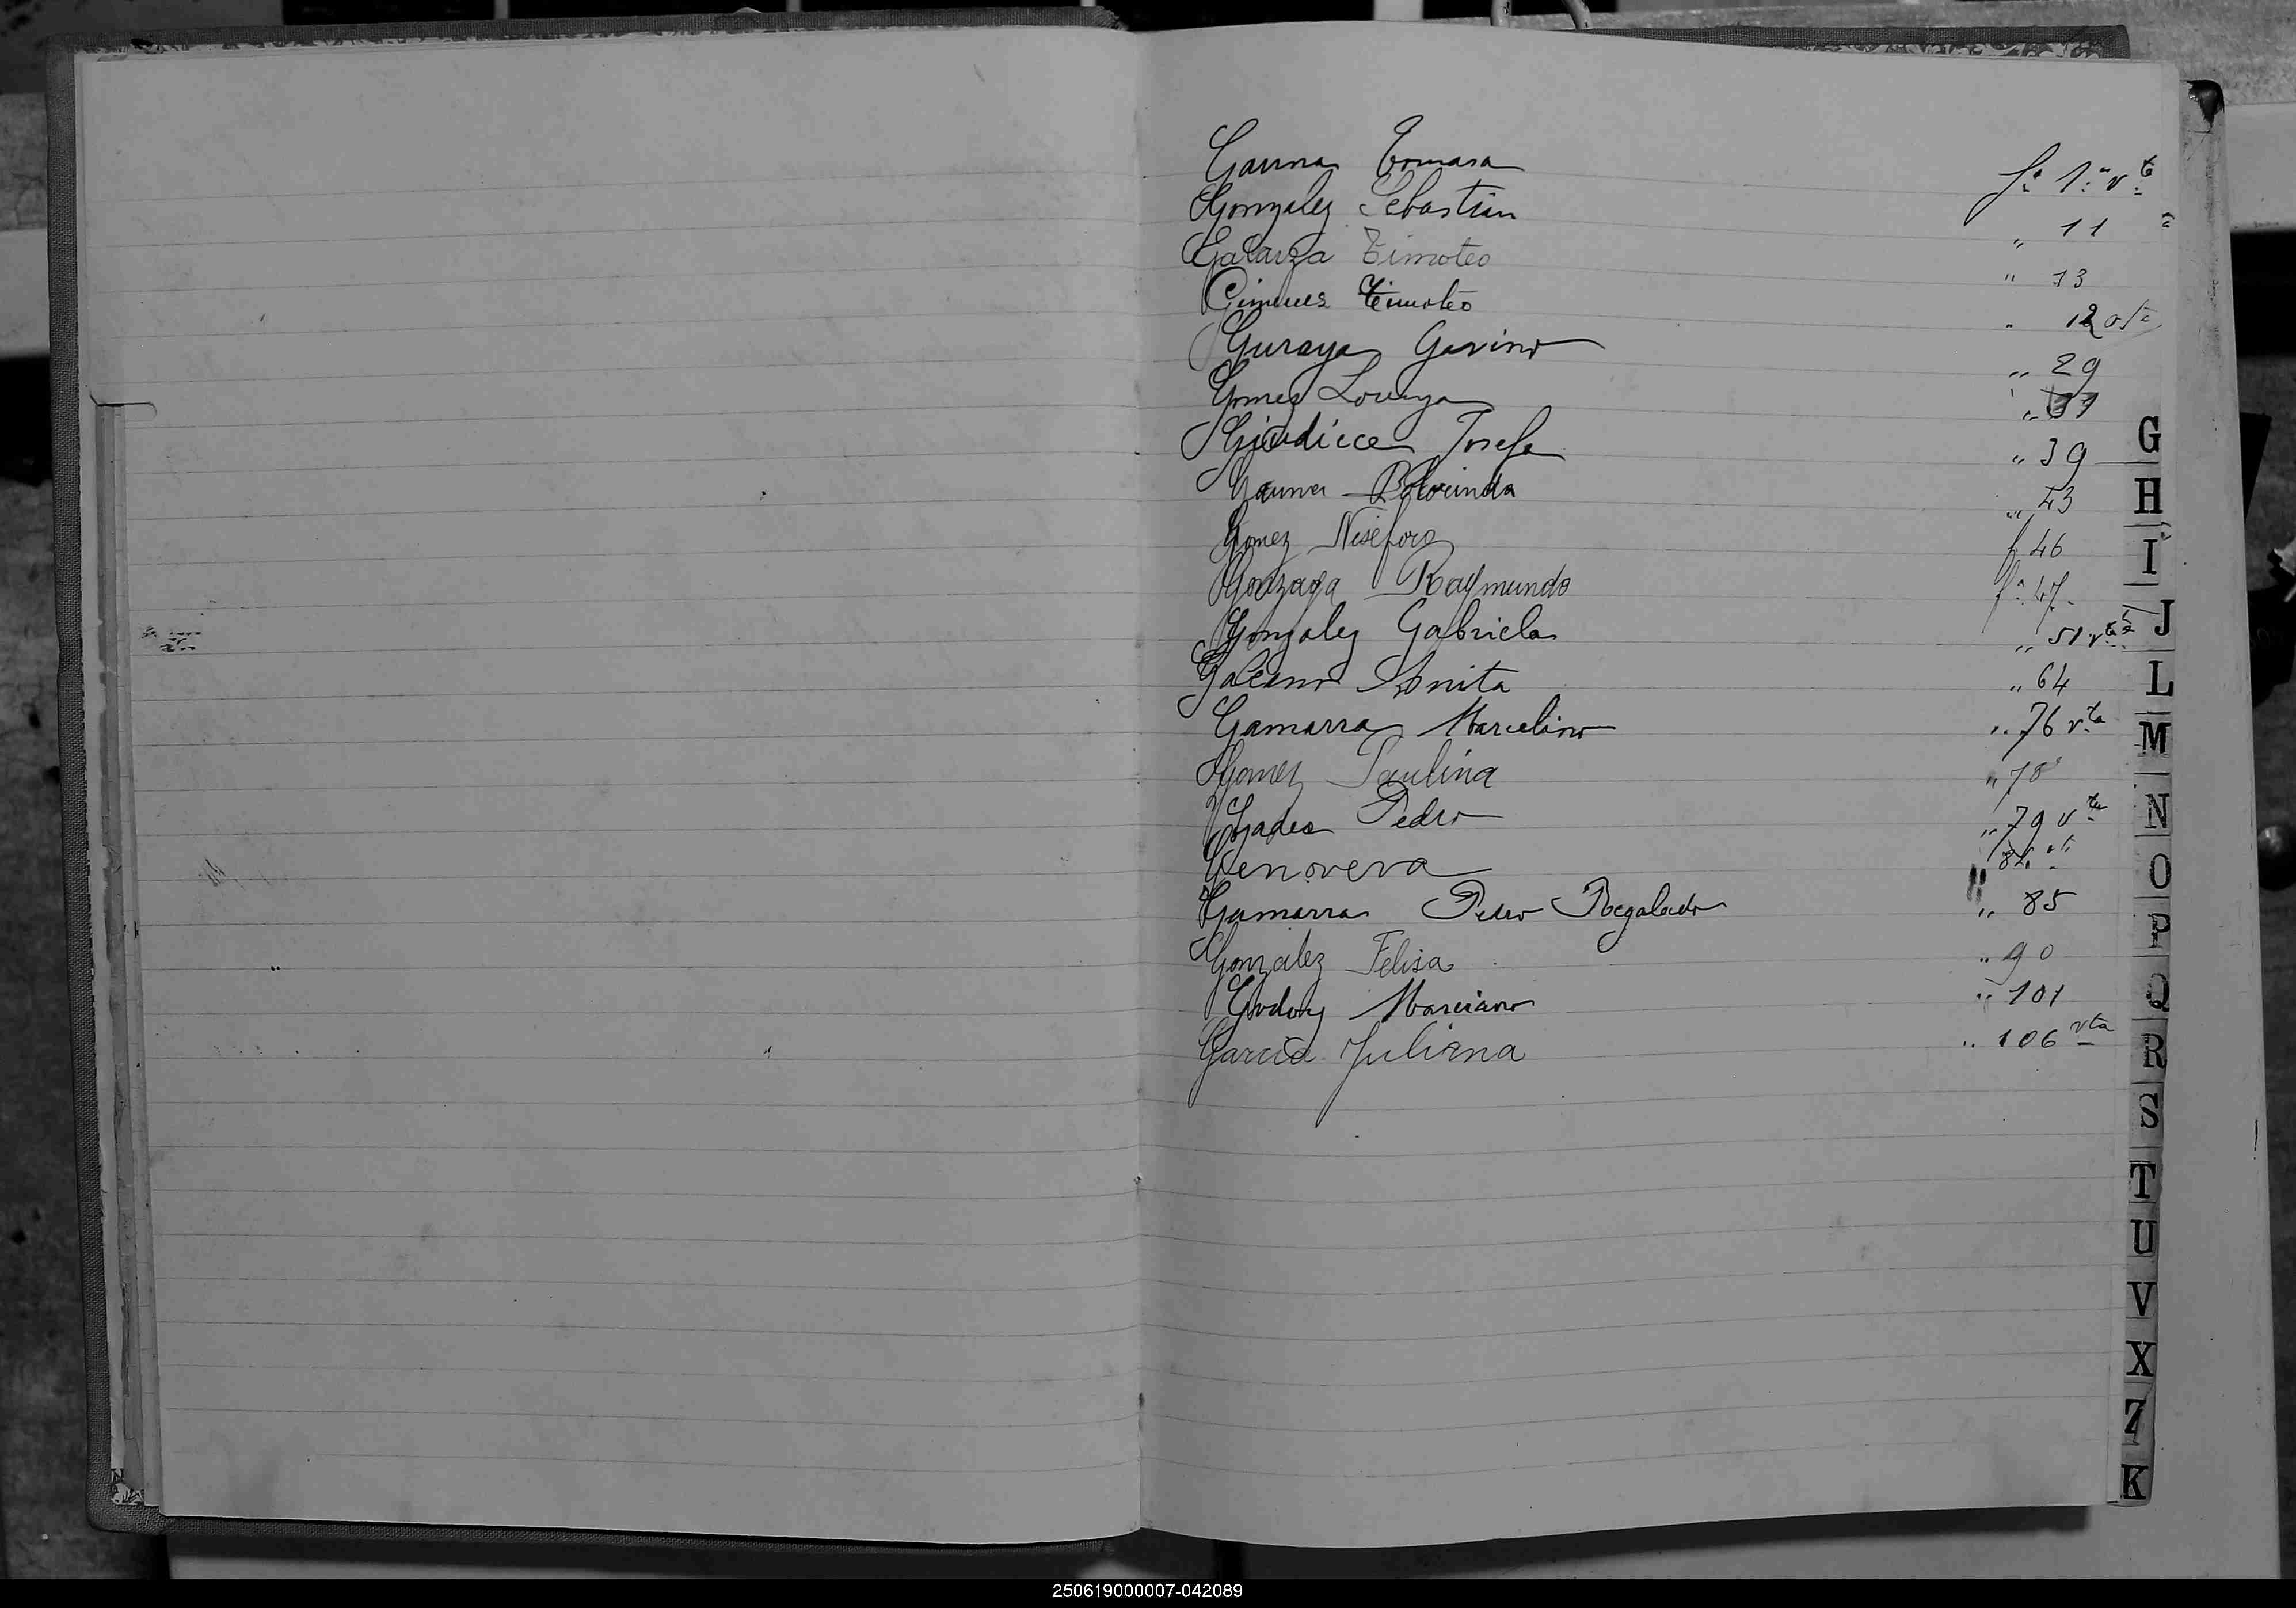 Gauna Tomasa fº 1º vtº
Gonzalez Sebastian " 11 "
Galarza Timoteo " 13
Gimenes Timoteo " 12 vta
Guraya Gavino " 29
Gomez Lorenza " 37
Giudicce Josefa " 39
Gauna Florinda " 43
Gomez Niséforo f 46
Gonzaga Raymundo fº 47
Gonzalez Gabriela " 51 vta
Galeano Anita " 64
Gamarra Marcelino " 76 vta
Gomez Paulina " 78
Gadea Pedro " 79 vta
Genoveva "
Gamarra Pedro Regalado " 85
Gonzalez Felisa " 90
Godoy Marciano " 101
Garcia Juliana " 106 vta
G
H
I
J
L
M
N
O
P
Q
R
S
T
U
V
X
Z
K
250619000007-042089